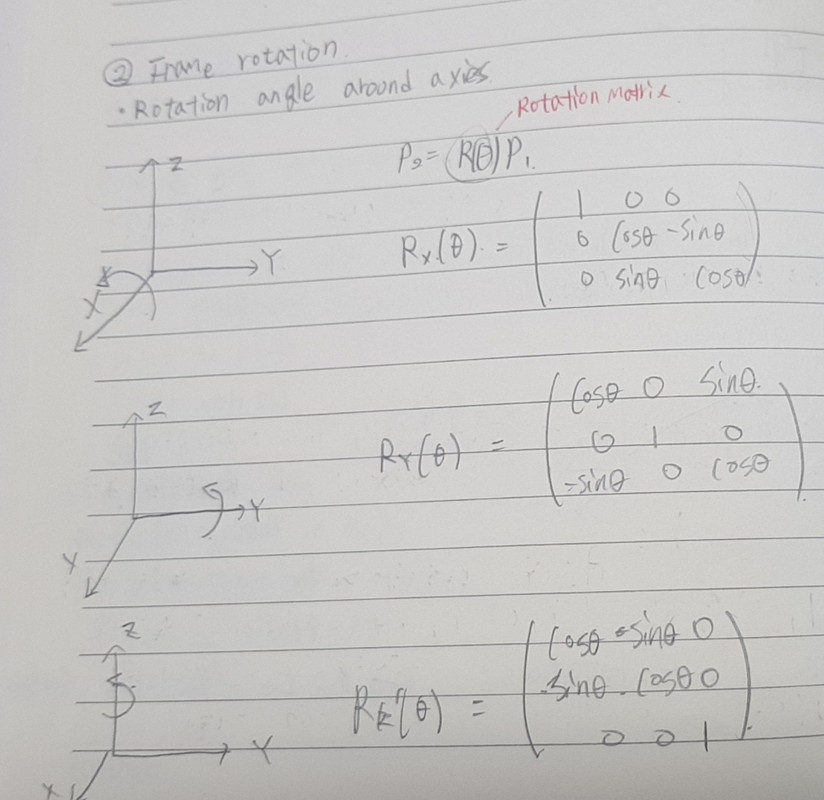 ② Frame rotation.
• Rotation angle around axis
Rotation Matrix
P₂ = R(θ) P₁
Z
Y
X
Rₓ(θ) =
1 0 0
0 cosθ -sinθ
0 sinθ cosθ
Z
Y
X
Rʏ(θ) =
cosθ 0 sinθ
0 1 0
-sinθ 0 cosθ
Z
Y
X
(θ) =
cosθ -sinθ 0
sinθ cosθ 0
0 0 1